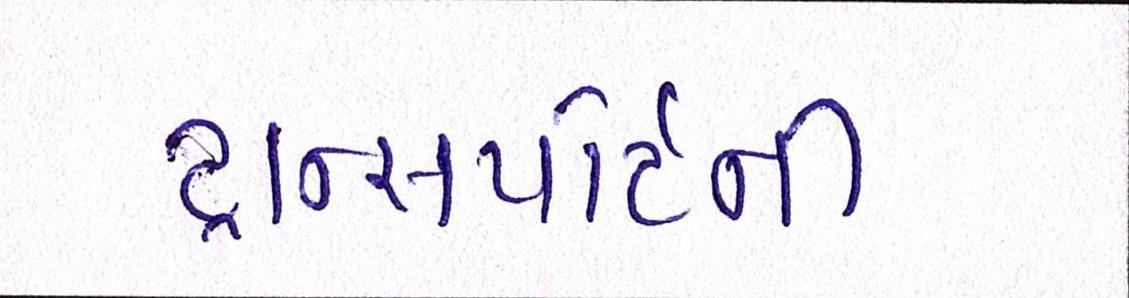 ટ્રાન્સપોર્ટની